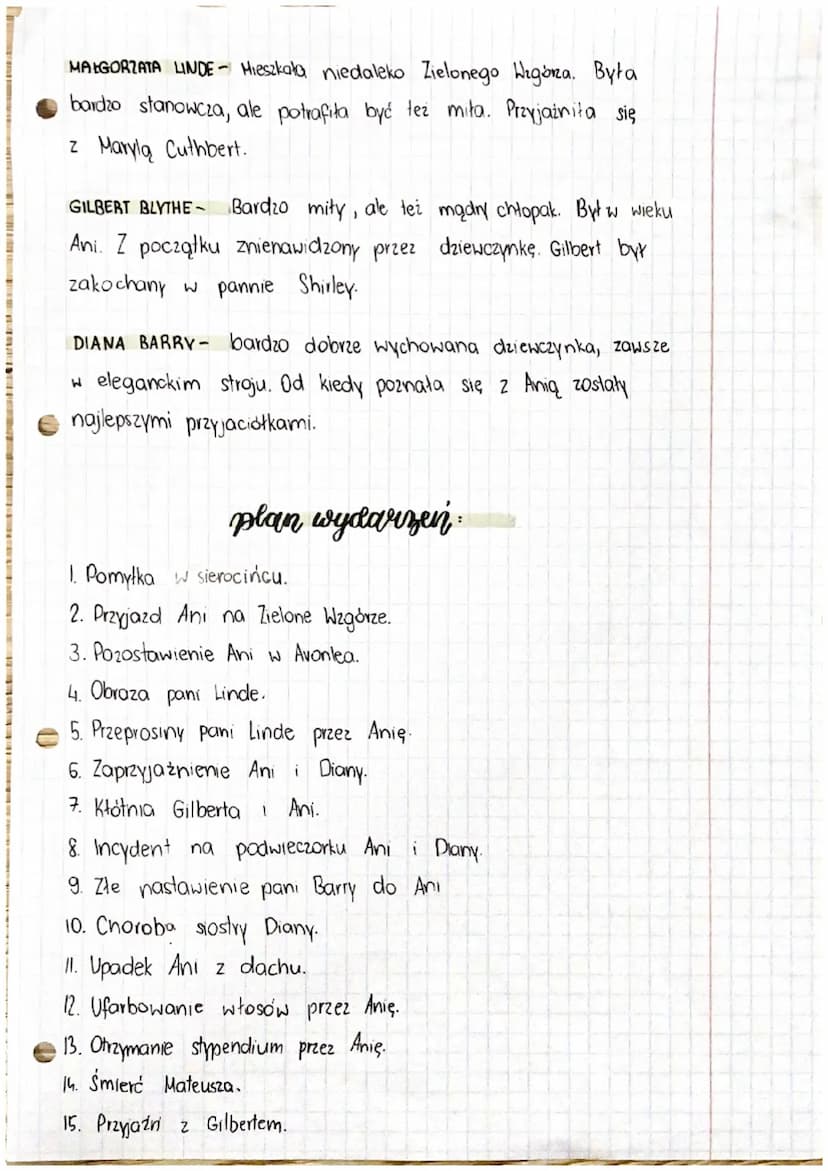 MAŁGORZATA LINDE - Mieszkała niedaleko Zielonego Wzgórza. Była
bardzo stanowcza, ale potrafiła być też miła. Przyjaźniła się
z Marylą Cuthbert.
GILBERT BLYTHE - Bardzo miły, ale też mądry chłopak. Był w wieku
Ani. Z początku znienawidzony przez dziewczynkę. Gilbert był
zakochany w pannie Shirley.
DIANA BARRY - bardzo dobrze wychowana dziewczynka, zawsze
w eleganckim stroju. Od kiedy poznała się z Anią zostały
najlepszymi przyjaciółkami.
plan wydarzeń:
1. Pomyłka w sierocińcu.
2. Przyjazd Ani na Zielone Wzgórze.
3. Pozostawienie Ani w Avonlea.
4. Obraza pani Linde.
5. Przeprosiny pani Linde przez Anię.
6. Zaprzyjaźnienie Ani i Diany.
7. Kłótnia Gilberta i Ani.
8. Incydent na podwieczorku Ani i Diany.
9. Złe nastawienie pani Barry do Ani
10. Choroba siostry Diany.
11. Upadek Ani z dachu.
12. Ufarbowanie włosów przez Anię.
13. Otrzymanie stypendium przez Anię.
14. Śmierć Mateusza.
15. Przyjaźń z Gilbertem.